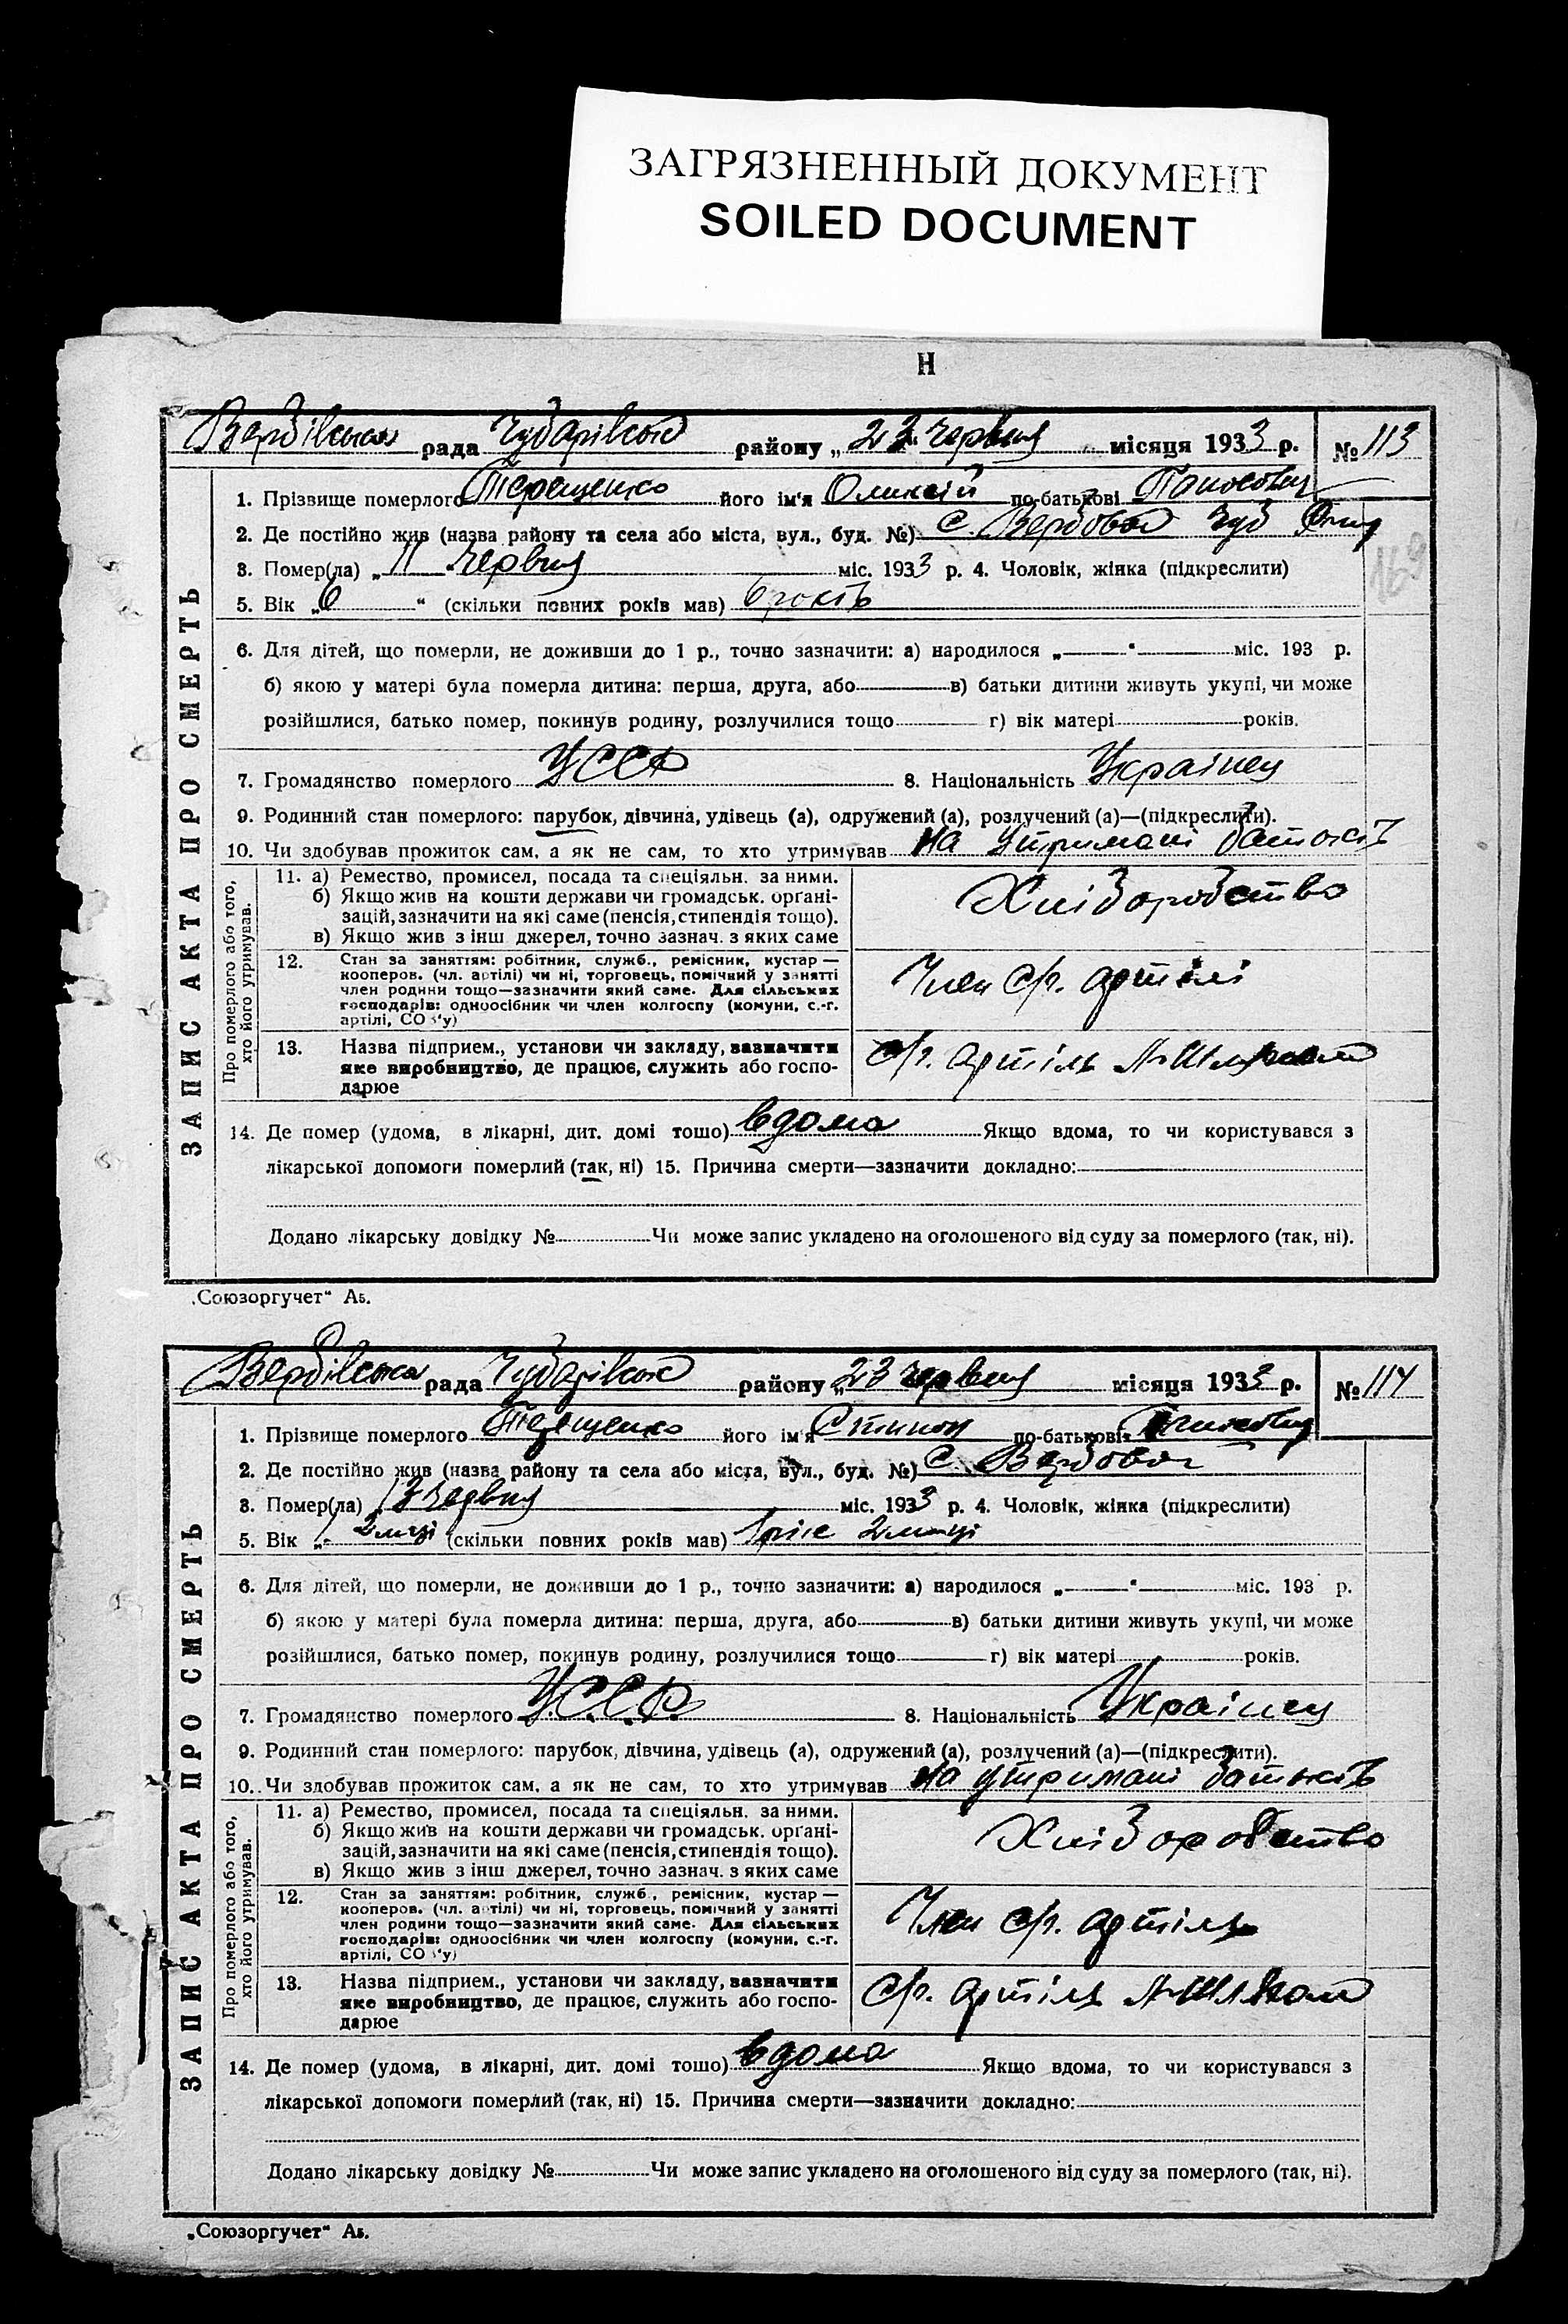 ЗАГРЯЗНЕННЫЙ ДОКУМЕНТ
SOILED DOCUMENT
Н
Вербівська рада Чубарівськ району „23" червня місяця 1933 р. № 113
1. Прізвище померлого Терещенко його ім'я Оликсій по-батькові Панасович
2. Де постійно жив (назва району та села або міста, вул., буд. №) с. Вербова Чуб
169
3. Помер(ла) „11 червня міс. 1933 р. 4. Чоловік, жінка (підкреслити)
5. Вік „6" (скільки повних років мав) 6 років
6. Для дітей, що померли, не доживши до 1 р., точно зазначити: а) народилося „—"— міс. 193 р.
б) якою у матері була померла дитина: перша, друга, або — в) батьки дитини живуть укупі, чи може
розійшлися, батько помер, покинув родину, розлучилися тощо — г) вік матері — років.
7. Громадянство померлого УССР 8. Національність Українец
9. Родинний стан померлого: парубок, дівчина, удівець (а), одружений (а), розлучений (а)—(підкреслити).
10. Чи здобував прожиток сам, а як не сам, то хто утримував на утримані батьків
ЗАПИС АКТА ПРО СМЕРТЬ
Про померлого або того, хто його утримував.
11. а) Ремество, промисел, посада та спеціяльн. за ними.
б) Якщо жив на кошти держави чи громадськ. орґані-
зацій, зазначити на які саме (пенсія, стипендія тощо).
в) Якщо жив з інш джерел, точно зазнач. з яких саме
Хліборобство
12. Стан за заняттям: робітник, служб., ремісник, кустар —
кооперов. (чл. артілі) чи ні, торговець, помічний у занятті
член родини тощо—зазначити який саме. Для сільських
господарів: одноосібник чи член колгоспу (комуни, с.-г.
артілі, СОЗ'у)
Член с/г. артілі
13. Назва підприєм., установи чи закладу, зазначити
яке виробництво, де працює, служить або госпо-
дарює
с/г. артіль
14. Де помер (удома, в лікарні, дит. домі тошо) вдома Якщо вдома, то чи користувався з
лікарської допомоги померлий (так, ні) 15. Причина смерти—зазначити докладно:
Додано лікарську довідку № Чи може запис укладено на оголошеного від суду за померлого (так, ні).
„Союзоргучет" Аь.
Вербівська рада Чубарівськ району „23 червня місяця 1933 р. № 114
1. Прізвище померлого Терещенко його ім'я по-батькові
2. Де постійно жив (назва району та села або міста, вул., буд. №) с. Вербова
3. Помер(ла) „13 червня міс. 1933 р. 4. Чоловік, жінка (підкреслити)
5. Вік „ (скільки повних років мав) 1 рік 2 міці
6. Для дітей, що померли, не доживши до 1 р., точно зазначити: а) народилося „—"— міс. 193 р.
б) якою у матері була померла дитина: перша, друга, або — в) батьки дитини живуть укупі, чи може
розійшлися, батько помер, покинув родину, розлучилися тощо — г) вік матері — років.
7. Громадянство померлого У.С.С.Р. 8. Національність Українец
9. Родинний стан померлого: парубок, дівчина, удівець (а), одружений (а), розлучений (а)—(підкреслити).
10. Чи здобував прожиток сам, а як не сам, то хто утримував на утримані батьків
ЗАПИС АКТА ПРО СМЕРТЬ
Про померлого або того, хто його утримував.
11. а) Ремество, промисел, посада та спеціяльн. за ними.
б) Якщо жив на кошти держави чи громадськ. орґані-
зацій, зазначити на які саме (пенсія, стипендія тощо).
в) Якщо жив з інш джерел, точно зазнач. з яких саме
Хліборобство
12. Стан за заняттям: робітник, служб., ремісник, кустар —
кооперов. (чл. артілі) чи ні, торговець, помічний у занятті
член родини тощо—зазначити який саме. Для сільських
господарів: одноосібник чи член колгоспу (комуни, с.-г.
артілі, СОЗ'у)
Член с/г. артіль
13. Назва підприєм., установи чи закладу, зазначити
яке виробництво, де працює, служить або госпо-
дарює
с/г. артіль
14. Де помер (удома, в лікарні, дит. домі тошо) вдома Якщо вдома, то чи користувався з
лікарської допомоги померлий (так, ні) 15. Причина смерти—зазначити докладно:
Додано лікарську довідку № Чи може запис укладено на оголошеного від суду за померлого (так, ні).
„Союзоргучет" Аь.